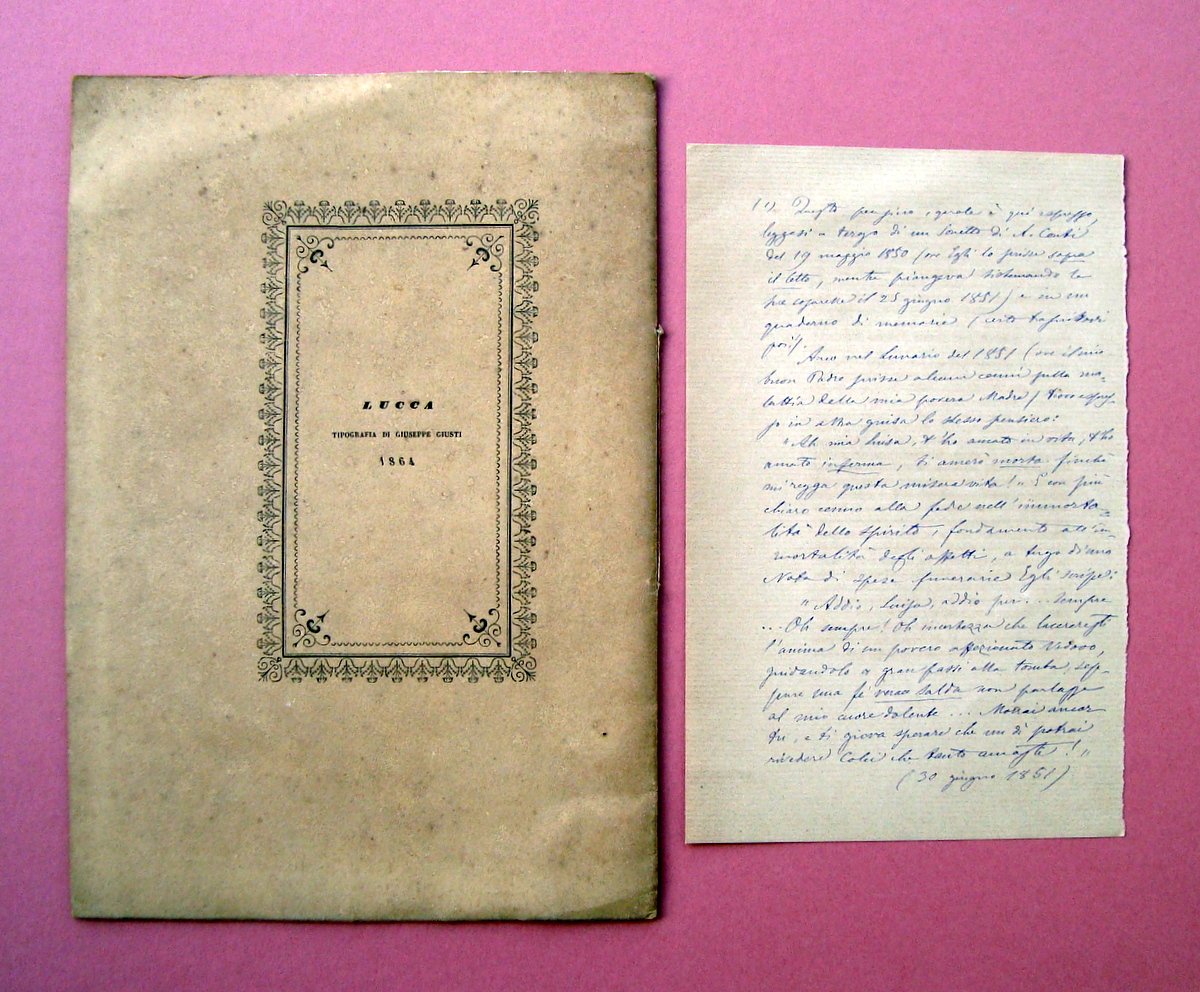 LUCCA
TIPOGRAFIA DI GIUSEPPE GIUSTI
1864
(1) Questo pensiero, quale è quì espresso,
leggesi a tergo di un Sonetto di A. Conti
del 19 maggio 1850 (ove Egli lo scrisse sopra
il letto, mentre piangeva
il 25 giugno 1851) e in un
quaderno di memorie
poi).
Anco nel Lunario del 1851 (ove il mio
buon Padre scrisse alcuni cenni sulla ma=
lattia della mia povera Madre) trovo espres=
so in altra guisa lo stesso pensiero:
"Ah mia Luisa, t'ho amato in vita, t'ho
amato inferma, ti amerò morta finchè
mi regga questa misera vita!" E con più
chiaro cenno alla fede nell'immorta=
lità dello spirito, fondamento all'im=
mortalità degli affetti, a tergo di una
Nota di spese funerarie Egli scrisse:
"Addio, Luisa, addio per... sempre
... Oh sempre! Oh incertezza che laceraresti
l'anima di un povero affezionato Vedovo,
guidandolo a gran passi alla tomba, sep=
pure una fè verace salda non parlasse
al mio cuore dolente.... Morrai ancor
tu, e ti giova sperare che un dì potrai
rivedere Colei che tanto amaste!"
(30 giugno 1851)